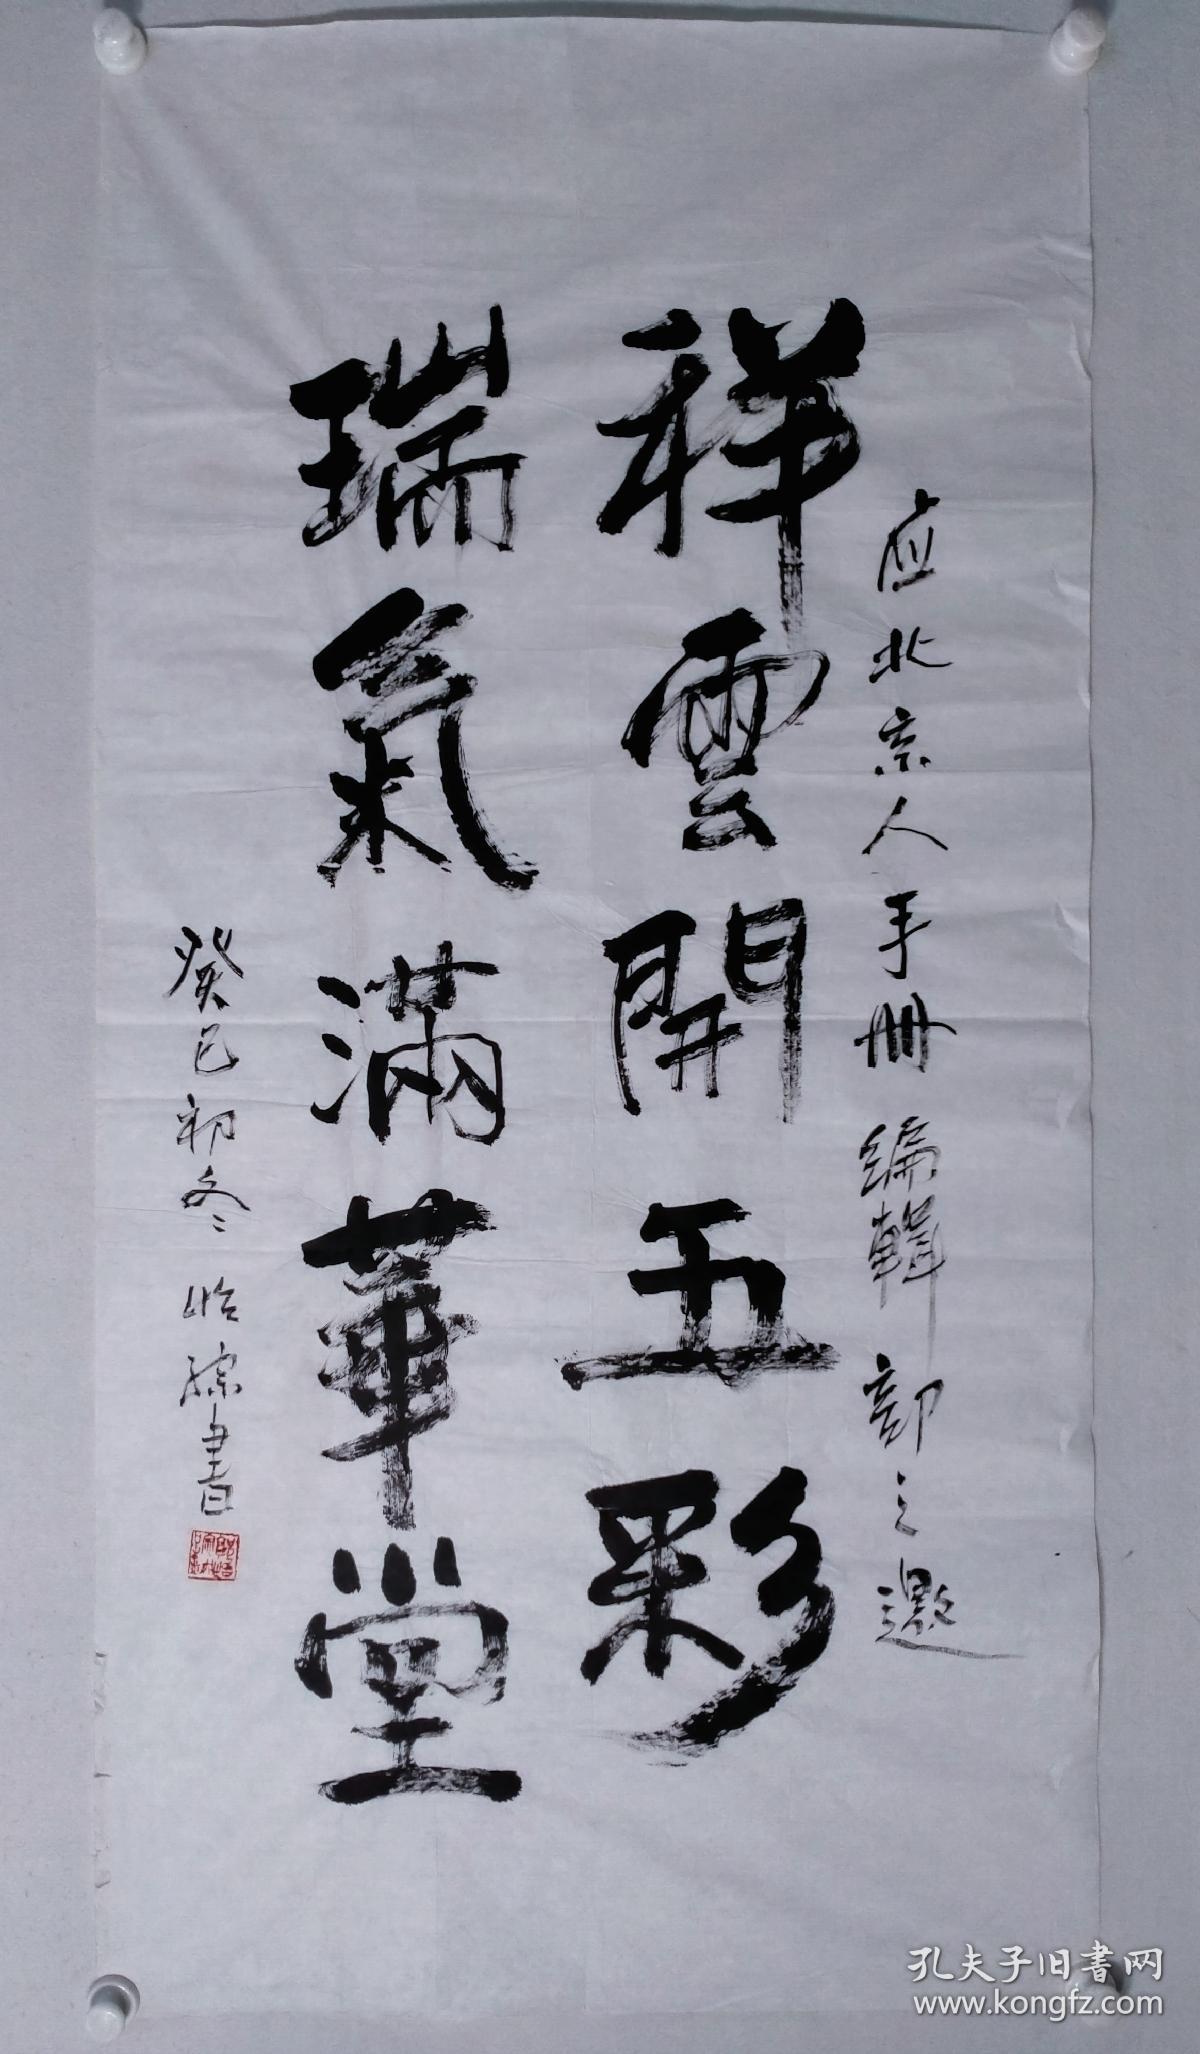 应北京人手册编辑部之邀
祥雲開五彩
瑞氣滿華堂
癸巳初冬 書
孔夫子旧書网
www.kongfz.com